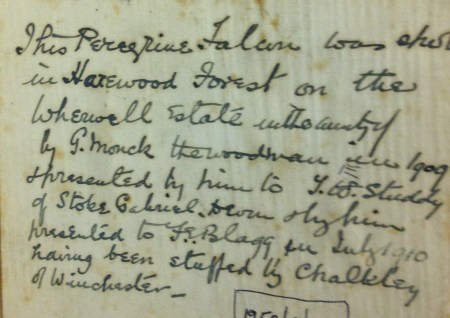 This Peregrine Falcon was shot
in Harewood Forest on the
Wherwell Estate in the county of
by G. Monck the woodman in 1909
& presented by him to T. W. Studdy
of Stoke Gabriel. Devon & by him
presented to F. E. Blagg in July 1910
having been stuffed by Chalkley
of Winchester_